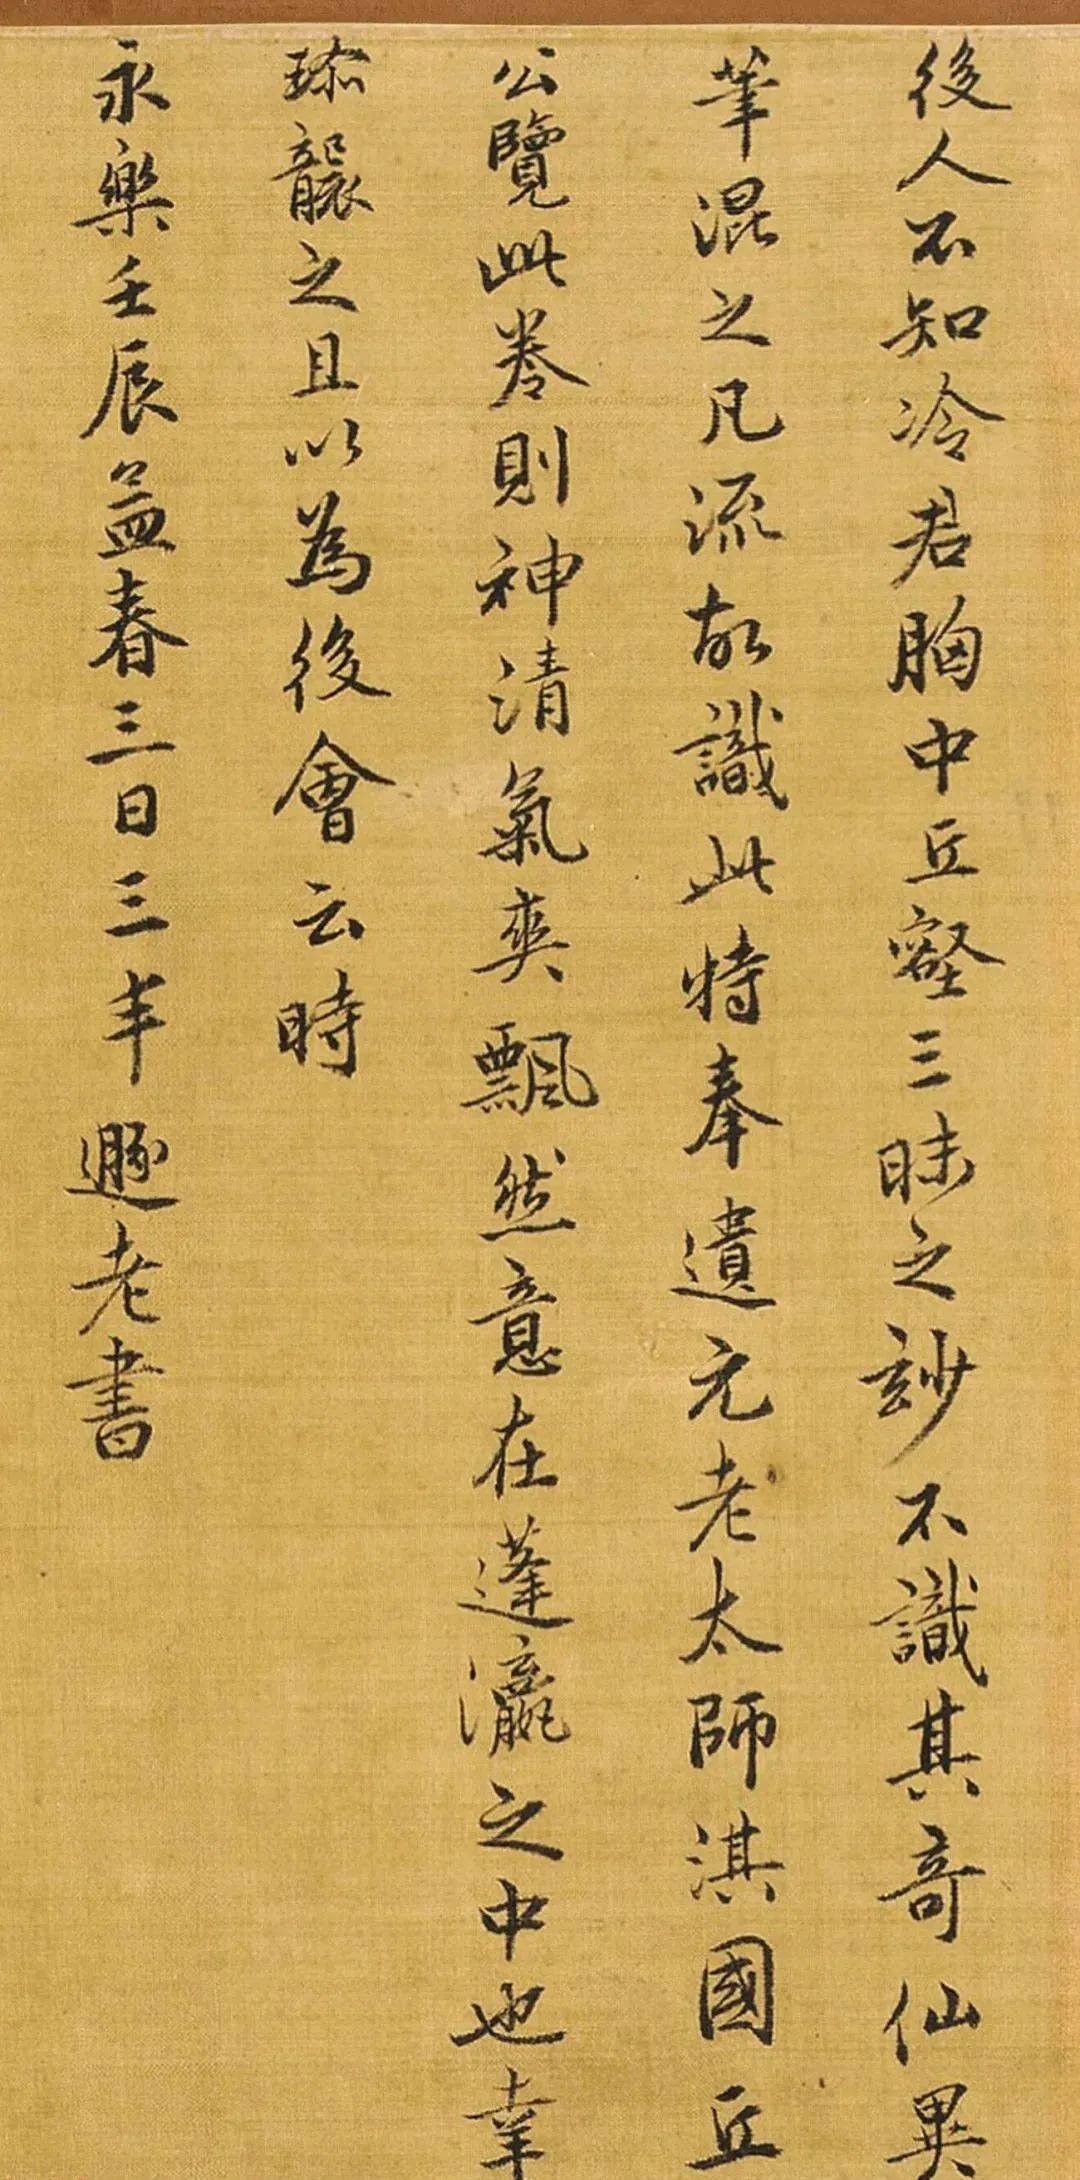 後人不知冷君胸中丘壑三昧之玅不識其奇仙異
筆混之凡流故識此特奉遺元老太師淇國丘
公覽此卷則神清氣爽飄然意在蓬瀛之中也幸
珎襲之且以為後會云時
永樂壬辰孟春三日三丰遯老書